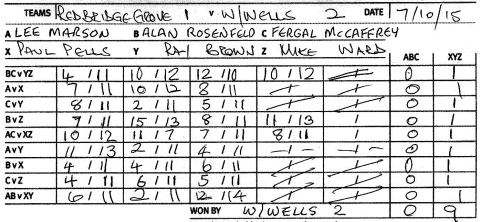 TEAMS REDBRIDGE GROVE 1 V W/WELLS 2 DATE 7/10/15
A LEE MARSON B ALAN ROSENFELD C FERGAL McCAFFREY
X PAUL PELLS Y RAJ BROWN Z MIKE WARD
ABC XYZ
BC v YZ 4 / 11 10 / 12 12 / 10 10 / 12 / 0 1
A v X 7 / 11 10 / 12 8 / 11 / / 0 1
C v Y 8 / 11 2 / 11 5 / 11 / / 0 1
B v Z 7 / 11 15 / 13 8 / 11 11 / 13 / 0 1
AC v XZ 10 / 12 11 / 7 7 / 11 8 / 11 / 0 1
A v Y 11 / 13 2 / 11 4 / 11 / / 0 1
B v X 4 / 11 4 / 11 6 / 11 / / 0 1
C v Z 4 / 11 6 / 11 5 / 11 / / 0 1
AB v XY 6 / 11 2 / 11 12 / 14 / / 0 1
WON BY W/WELLS 2 0 9